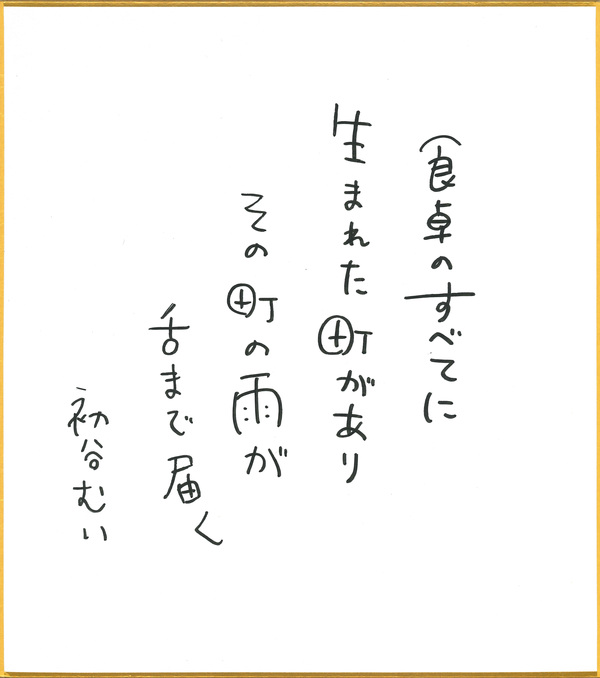 食卓のすべてに
生まれた町があり
その町の雨が
舌まで届く
初谷むい